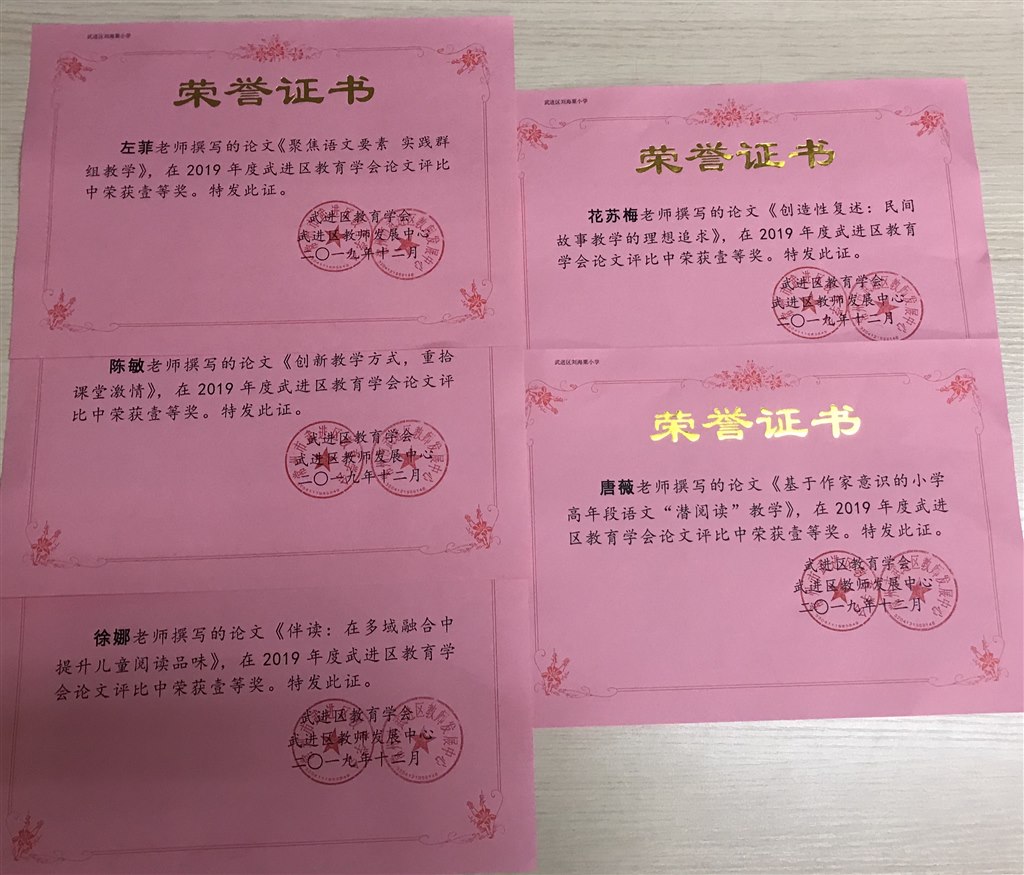 武进区刘海粟小学
荣誉证书
左菲老师撰写的论文《聚焦语文要素 实践群
组教学》，在 2019 年度武进区教育学会论文评比
中荣获壹等奖。特发此证。
武进区教育学会
武进区教师发展中心
二〇一九年十二月
陈敏老师撰写的论文《创新教学方式，重拾
课堂激情》，在 2019 年度武进区教育学会论文评
比中荣获壹等奖。特发此证。
武进区教育学会
武进区教师发展中心
二〇一九年十二月
徐娜老师撰写的论文《伴读：在多域融合中
提升儿童阅读品味》，在 2019 年度武进区教育学
会论文评比中荣获壹等奖。特发此证。
武进区教育学会
武进区教师发展中心
二〇一九年十二月
武进区刘海粟小学
荣誉证书
花苏梅老师撰写的论文《创造性复述：民间
故事教学的理想追求》，在 2019 年度武进区教育
学会论文评比中荣获壹等奖。特发此证。
武进区教育学会
武进区教师发展中心
二〇一九年十二月
武进区刘海粟小学
荣誉证书
唐薇老师撰写的论文《基于作家意识的小学
高年段语文“潜阅读”教学》，在 2019 年度武进
区教育学会论文评比中荣获壹等奖。特发此证。
武进区教育学会
武进区教师发展中心
二〇一九年十二月